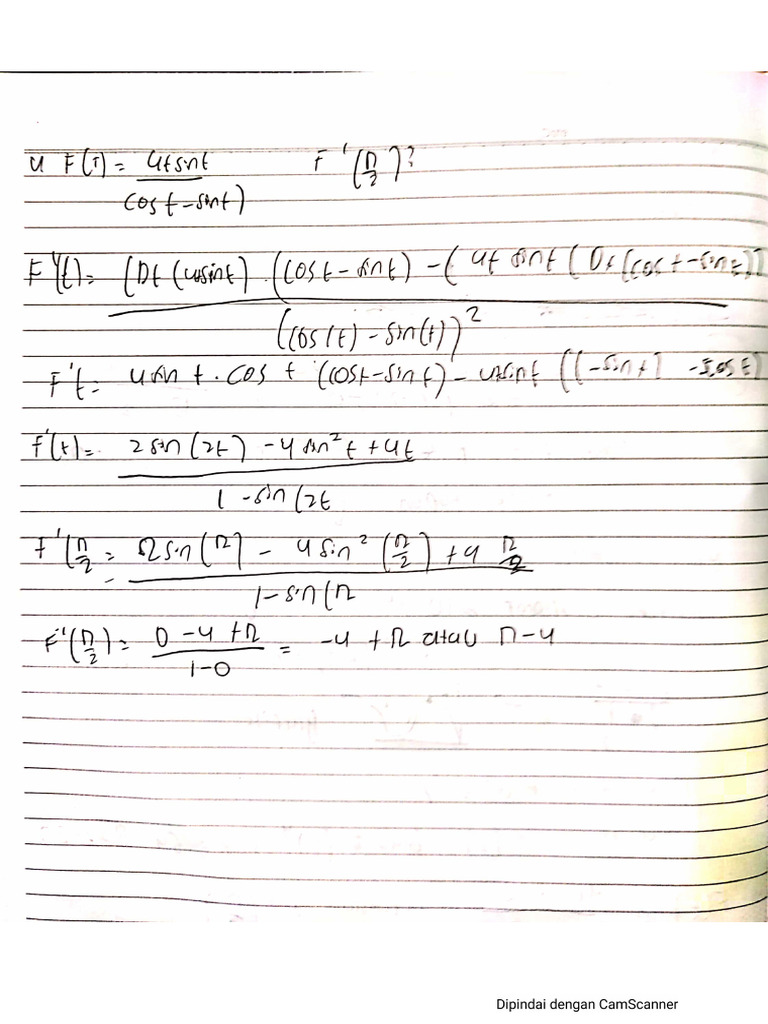 4 F(t) = 4t sint / cost - sint) F'(π/2)?
F'(t) = (Dt (4t sint) . (cost - sint) - (4t sint (Dt (cost - sint)) / (cos(t) - sin(t))²
F't = 4 sin t . cos t (cost - sint) - 4t sint ((-sin t) - cos t)
F'(t) = 2 sin (2t) - 4 sin² t + 4t / 1 - sin (2t
F'(π/2 = 2 sin (π) - 4 sin² (π/2) + 4 π/2 / 1 - sin (π
F'(π/2) = 0 - 4 + π / 1 - 0 = -4 + π atau π - 4
Dipindai dengan CamScanner